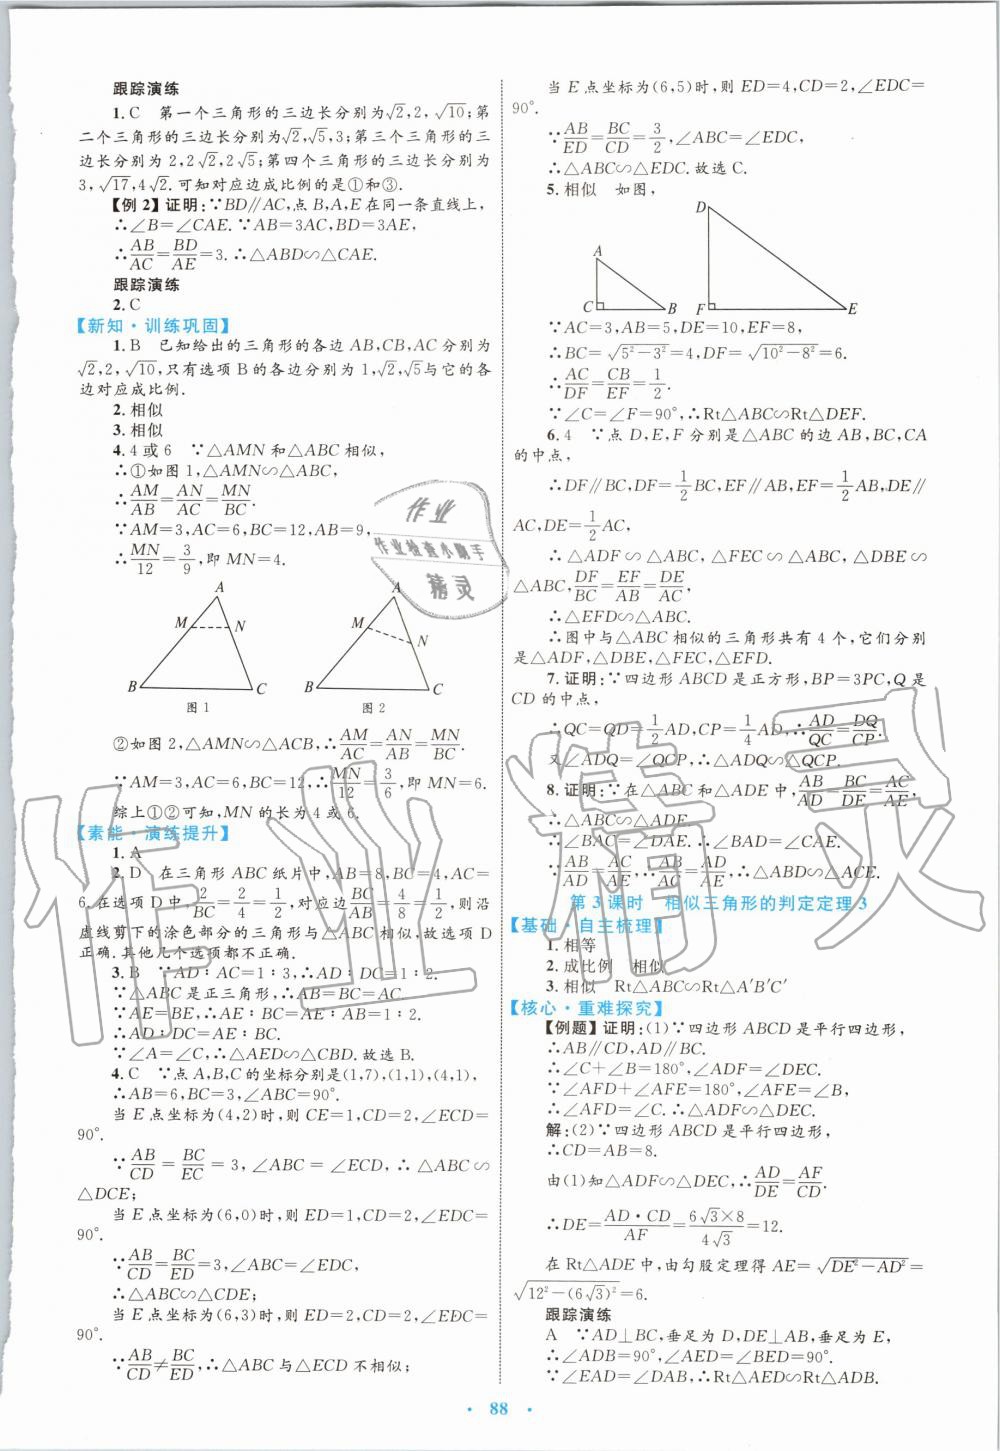 跟踪演练
1.C 第一个三角形的三边长分别为√2,2,√10;第
二个三角形的三边长分别为√2,√5,3;第三个三角形的三
边长分别为2,2√2,2√5;第四个三角形的三边长分别为
3,√17,4√2.可知对应边成比例的是①和③.
【例2】证明:∵BD∥AC,点B,A,E在同一条直线上,
∴∠B=∠CAE.∵AB=3AC,BD=3AE,
∴AB/AC=BD/AE=3.∴△ABD∽△CAE.
跟踪演练
2.C
【新知·训练巩固】
1.B 已知给出的三角形的各边AB,CB,AC分别为
√2,2,√10,只有选项B的各边分别为1,√2,√5与它的各
边对应成比例.
2.相似
3.相似
4.4或6 ∵△AMN和△ABC相似,
∴①如图1,△AMN∽△ABC,
∴AM/AB=AN/AC=MN/BC.
∵AM=3,AC=6,BC=12,AB=9,
∴MN/12=3/9,即MN=4.
A
M N
B C
图1
A
M N
B C
图2
②如图2,△AMN∽△ACB,∴AM/AC=AN/AB=MN/BC.
∵AM=3,AC=6,BC=12,∴MN/12=3/6,即MN=6.
综上①②可知,MN的长为4或6.
【素能·演练提升】
1.A
2.D 在三角形ABC纸片中,AB=8,BC=4,AC=
6.在选项D中,2/BC=2/4=1/2,对应边BC/AB=4/8=1/2,则沿
虚线剪下的涂色部分的三角形与△ABC相似,故选项D
正确.其他几个选项都不正确.
3.B ∵AD∶AC=1∶3,∴AD∶DC=1∶2.
∵△ABC是正三角形,∴AB=BC=AC.
∵AE=BE,∴AE∶BC=AE∶AB=1∶2.
∴AD∶DC=AE∶BC.
∵∠A=∠C,∴△AED∽△CBD.故选B.
4.C ∵点A,B,C的坐标分别是(1,7),(1,1),(4,1),
∴AB=6,BC=3,∠ABC=90°.
当E点坐标为(4,2)时,则CE=1,CD=2,∠ECD=
90°.
∵AB/CD=BC/EC=3,∠ABC=∠ECD,∴△ABC∽
△DCE;
当E点坐标为(6,0)时,则ED=1,CD=2,∠EDC=
90°.
∵AB/CD=BC/ED=3,∠ABC=∠EDC,
∴△ABC∽△CDE;
当E点坐标为(6,3)时,则ED=2,CD=2,∠EDC=
90°.
∵AB/CD≠BC/ED,∴△ABC与△ECD不相似;
当E点坐标为(6,5)时,则ED=4,CD=2,∠EDC=
90°.
∵AB/ED=BC/CD=3/2,∠ABC=∠EDC,
∴△ABC∽△EDC.故选C.
5.相似 如图,
D
A
C B F E
∵AC=3,AB=5,DE=10,EF=8,
∴BC=√(5²−3²)=4,DF=√(10²−8²)=6.
∴AC/DF=CB/EF=1/2.
∵∠C=∠F=90°,∴Rt△ABC∽Rt△DEF.
6.4 ∵点D,E,F分别是△ABC的边AB,BC,CA
的中点,
∴DF∥BC,DF=1/2BC,EF∥AB,EF=1/2AB,DE∥
AC,DE=1/2AC,
∴△ADF∽△ABC,△FEC∽△ABC,△DBE∽
△ABC,DF/BC=EF/AB=DE/AC,
∴△EFD∽△ABC.
∴图中与△ABC相似的三角形共有4个,它们分别
是△ADF,△DBE,△FEC,△EFD.
7.证明:∵四边形ABCD是正方形,BP=3PC,Q是
CD的中点,
∴QC=QD=1/2AD,CP=1/4AD,∴AD/QC=DQ/CP.
又∠ADQ=∠QCP,∴△ADQ∽△QCP.
8.证明:∵在△ABC和△ADE中,AB/AD=BC/DE=AC/AE,
∴△ABC∽△ADE.
∴∠BAC=∠DAE.∴∠BAD=∠CAE.
∵AB/AD=AC/AE,∴AB/AC=AD/AE,
∴△ABD∽△ACE.
第3课时 相似三角形的判定定理3
【基础·自主梳理】
1.相等
2.成比例 相似
3.相似 Rt△ABC∽Rt△A′B′C′
【核心·重难探究】
【例题】证明:(1)∵四边形ABCD是平行四边形,
∴AB∥CD,AD∥BC.
∴∠C+∠B=180°,∠ADF=∠DEC.
∵∠AFD+∠AFE=180°,∠AFE=∠B,
∴∠AFD=∠C.∴△ADF∽△DEC.
解:(2)∵四边形ABCD是平行四边形,
∴CD=AB=8.
由(1)知△ADF∽△DEC,∴AD/DE=AF/CD.
∴DE=AD·CD/AF=6√3×8/4√3=12.
在Rt△ADE中,由勾股定理得AE=√(DE²−AD²)=
√(12²−(6√3)²)=6.
跟踪演练
A ∵AD⊥BC,垂足为D,DE⊥AB,垂足为E,
∴∠ADB=90°,∠AED=∠BED=90°.
∵∠EAD=∠DAB,∴Rt△AED∽Rt△ADB.
· 88 ·
作业
作业检查小助手
精灵
作业精灵